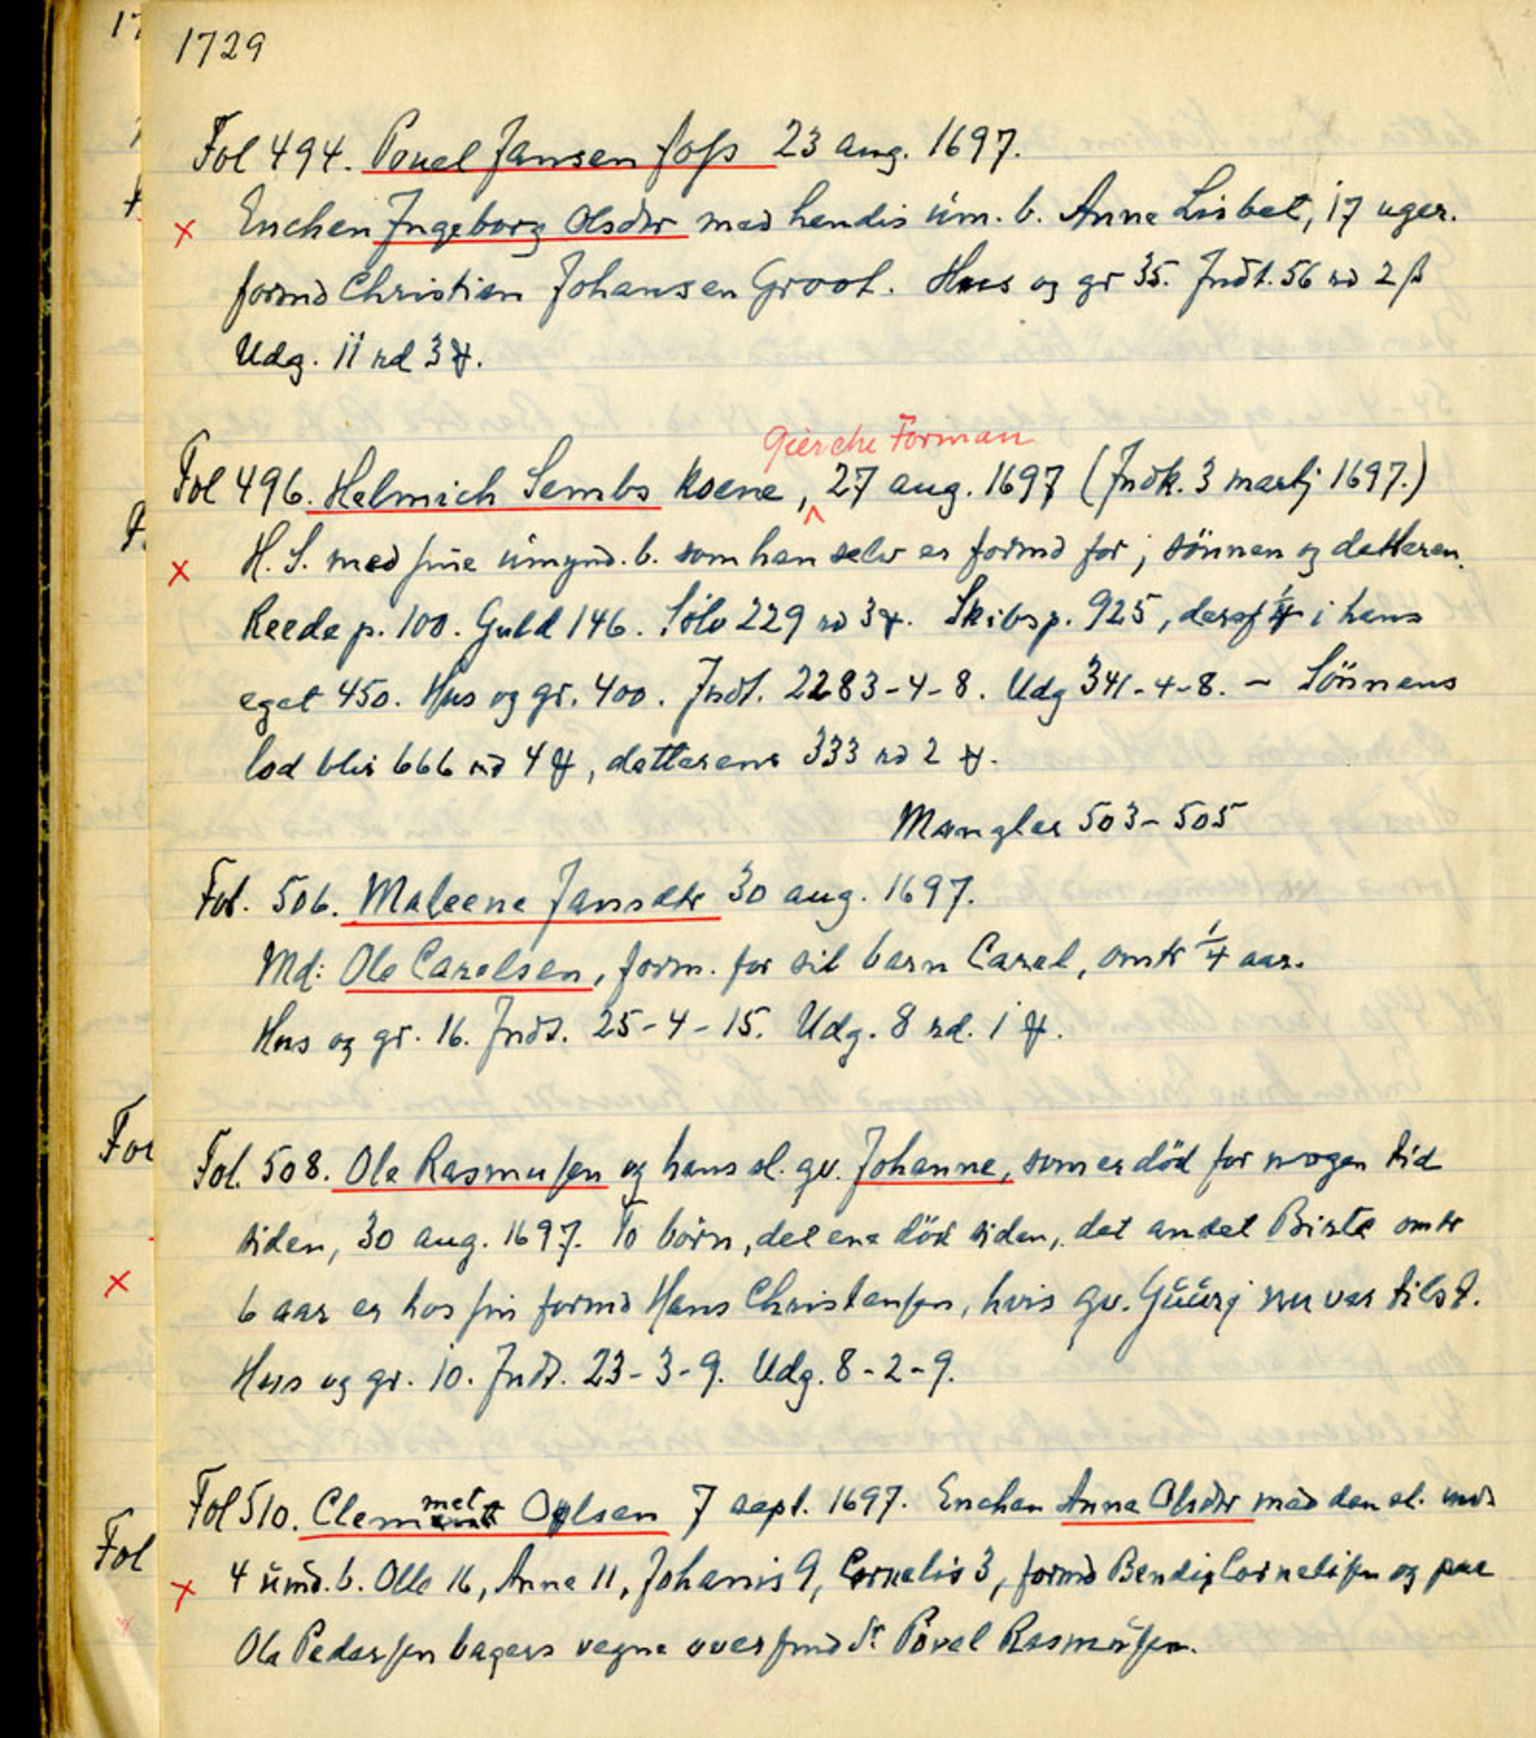 1729
Fol 494. Pouel Jansen foss 23 aug. 1697.
x Enchen Ingeborg Olsdtr med hendis úm. b. Anne Lisbet, 17 uger.
formd Christien Johansen Groot. Hus og gr 35. Indt. 56 rd 2 ß
Udg. 11 rd 3 ℳ.
Gierche Forman
Fol 496. Helmich Sembs koene, 27 aug. 1697 (Indk. 3 martj 1697.)
x H. S. med sine úmynd. b. som han selv er formd for; sönnen og datteren.
Reede p. 100. Guld 146. Sölv 229 rd 3 ℳ. Skibsp. 925, deraf 1/4 i hans
eget 450. Hus og gr. 400. Indt. 2283-4-8. Udg 341-4-8. - Sönnens
lod blir 666 rd 4 ℳ, datterens 333 rd 2 ℳ.
Mangler 503-505
Fol. 506. Maleene Jansdtr 30 aug. 1697.
Md: Ole Carelsen, form. for sit barn Carel, omtr 1/4 aar.
Hus og gr. 16. Indt. 25-4-15. Udg. 8 rd. 1 ℳ.
Fol. 508. Ole Rasmusen og hans sl. qv. Johanne, som er död for nogen tid
siden, 30 aug. 1697. To börn, det ene död siden, det andet Birte omtr
x 6 aar er hos sin formd Hans Christensen, hvis qv. Gúúrj nu var tilst.
Hus og gr. 10. Indt. 23-3-9. Udg. 8-2-9.
Fol 510. Clemmet Oelsen 7 sept. 1697. Enchen Anne Olsdtr med den sl. md
x 4 úmd. b. Olle 16, Anne 11, Johanis 9, Cornelis 3, formd Bendix Cornelisen og paa
Ole Pedersen bagers vegne overfmd Sr. Povel Rasmúsen.